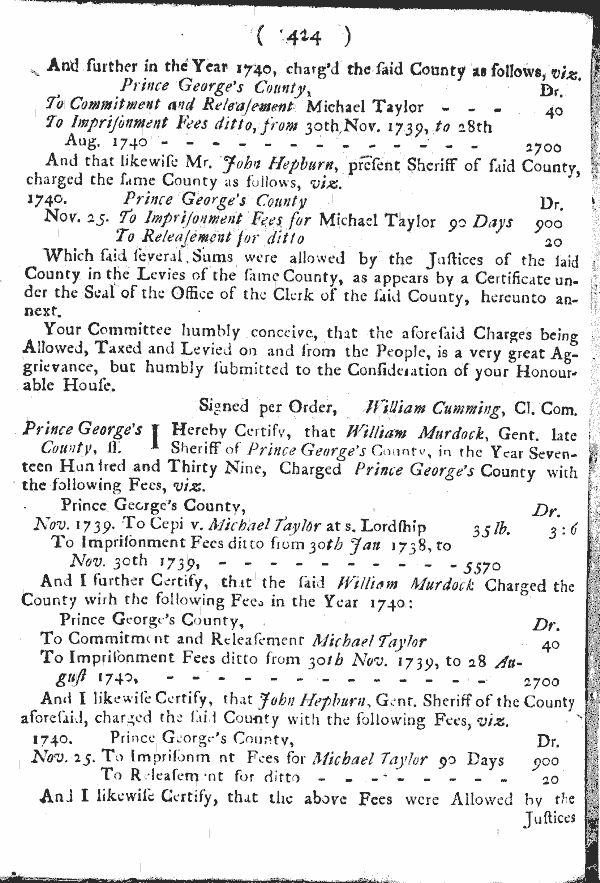 ( 424 )
And further in the Year 1740, charg'd the ſaid County as follows, viz.
Prince George's County, Dr.
To Commitment and Releaſement Michael Taylor - - - 40
To Impriſonment Fees ditto, from 30th Nov. 1739, to 28th
Aug. 1740 - - - - - - - - - - - - 2700
And that likewiſe Mr. John Hepburn, preſent Sheriff of ſaid County,
charged the ſame County as follows, viz.
1740. Prince George's County Dr.
Nov. 25. To Impriſonment Fees for Michael Taylor 90 Days 900
To Releaſement for ditto 20
Which ſaid ſeveral Sums were allowed by the Juſtices of the ſaid
County in the Levies of the ſame County, as appears by a Certificate un-
der the Seal of the Office of the Clerk of the ſaid County, hereunto an-
next.
Your Committee humbly conceive, that the aforeſaid Charges being
Allowed, Taxed and Levied on and from the People, is a very great Ag-
grievance, but humbly ſubmitted to the Conſideration of your Honour-
able Houſe.
Signed per Order, William Cumming, Cl. Com.
Prince George's I Hereby Certify, that William Murdock, Gent. late
County, ſſ. Sheriff of Prince George's County, in the Year Seven-
teen Hundred and Thirty Nine, Charged Prince George's County with
the following Fees, viz.
Prince George's County, Dr.
Nov. 1739. To Cepi v. Michael Taylor at s. Lordſhip 35 lb. 3 : 6
To Impriſonment Fees ditto from 30th Jan 1738, to
Nov. 30th 1739, - - - - - - - - - - 5570
And I further Certify, that the ſaid William Murdock Charged the
County with the following Fees in the Year 1740:
Prince George's County, Dr.
To Commitment and Releaſement Michael Taylor 40
To Impriſonment Fees ditto from 30th Nov. 1739, to 28 Au-
guſt 1740, - - - - - - - - - - - - - 2700
And I likewiſe Certify, that John Hepburn, Gent. Sheriff of the County
aforeſaid, charged the ſaid County with the following Fees, viz.
1740. Prince George's County, Dr.
Nov. 25. To Impriſonm nt Fees for Michael Taylor 90 Days 900
To Releaſement for ditto - - - - - - - 20
And I likewiſe Certify, that the above Fees were Allowed by the
Juſtices